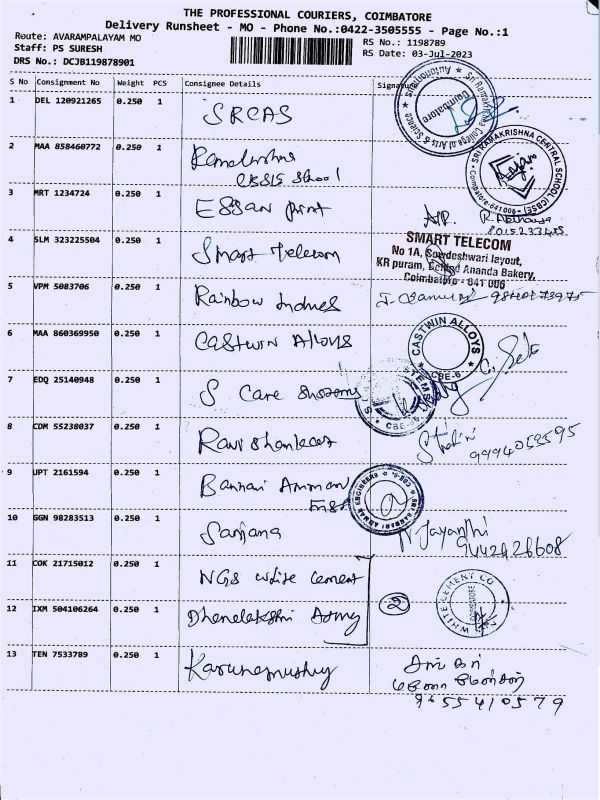 THE PROFESSIONAL COURIERS, COIMBATORE
Delivery Runsheet - MO - Phone No.:0422-3505555 - Page No.:1
Route: AVARAMPALAYAM MO
RS No.: 1198789
Staff: PS SURESH
RS Date: 03-Jul-2023
DRS No.: DCJB119878901
S No Consignment No Weight PCS Consignee Details Signature
1 DEL 120921265 0.250 1 SRCAS
Sri Ramakrishna College of Arts & Science
Autonomous
Coimbatore
2 MAA 858460772 0.250 1 Ramakrishna
CBSE School
SRI RAMAKRISHNA CENTRAL SCHOOL (CBSE)
Coimbatore-641006
3 MRT 1234724 0.250 1 ESSAR Print
4 SLM 323225504 0.250 1 Smart Telecom
SMART TELECOM
No 1A, Sowdeshwari layout,
KR puram, Behind Ananda Bakery,
Coimbatore - 641 006
5 VPM 5083706 0.250 1 Rainbow
6 MAA 860369950 0.250 1 CASTWIN Alloys
CASTWIN ALLOYS
CBE-6
7 EDQ 25140948 0.250 1 S Care
CBE-6
8 CDM 55238037 0.250 1 Ravi Shankar
9994053595
9 UPT 2161594 0.250 1 Bannari Amman
Engg
10 GGN 98283513 0.250 1 Sanjana
N Jayanthi
9442926608
11 COK 21715012 0.250 1 NGS white cement
2
WHITE CEMENT CO
12 IXM 504106264 0.250 1 Dhanalakshmi
13 TEN 7533789 0.250 1 Karunamurthy
9655410579